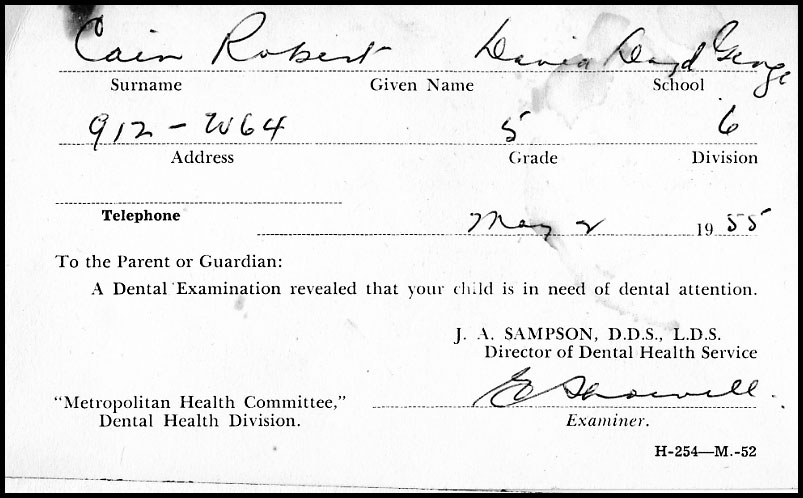 Cain Robert David Lloyd George
Surname Given Name School
912 - W64 5 6
Address Grade Division
Telephone
May 2 1955
To the Parent or Guardian:
A Dental Examination revealed that your child is in need of dental attention.
J. A. SAMPSON, D.D.S., L.D.S.
Director of Dental Health Service
"Metropolitan Health Committee,"
Dental Health Division.
Examiner.
H-254—M.-52